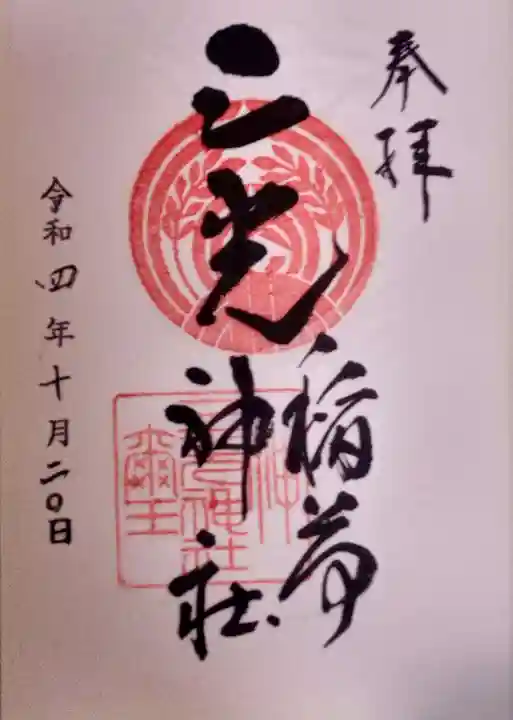 奉拝
三光稲荷神社
令和四年十月二〇日